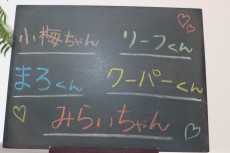 小梅ちゃん リーフくん
まろくん クーパーくん
みらいちゃん